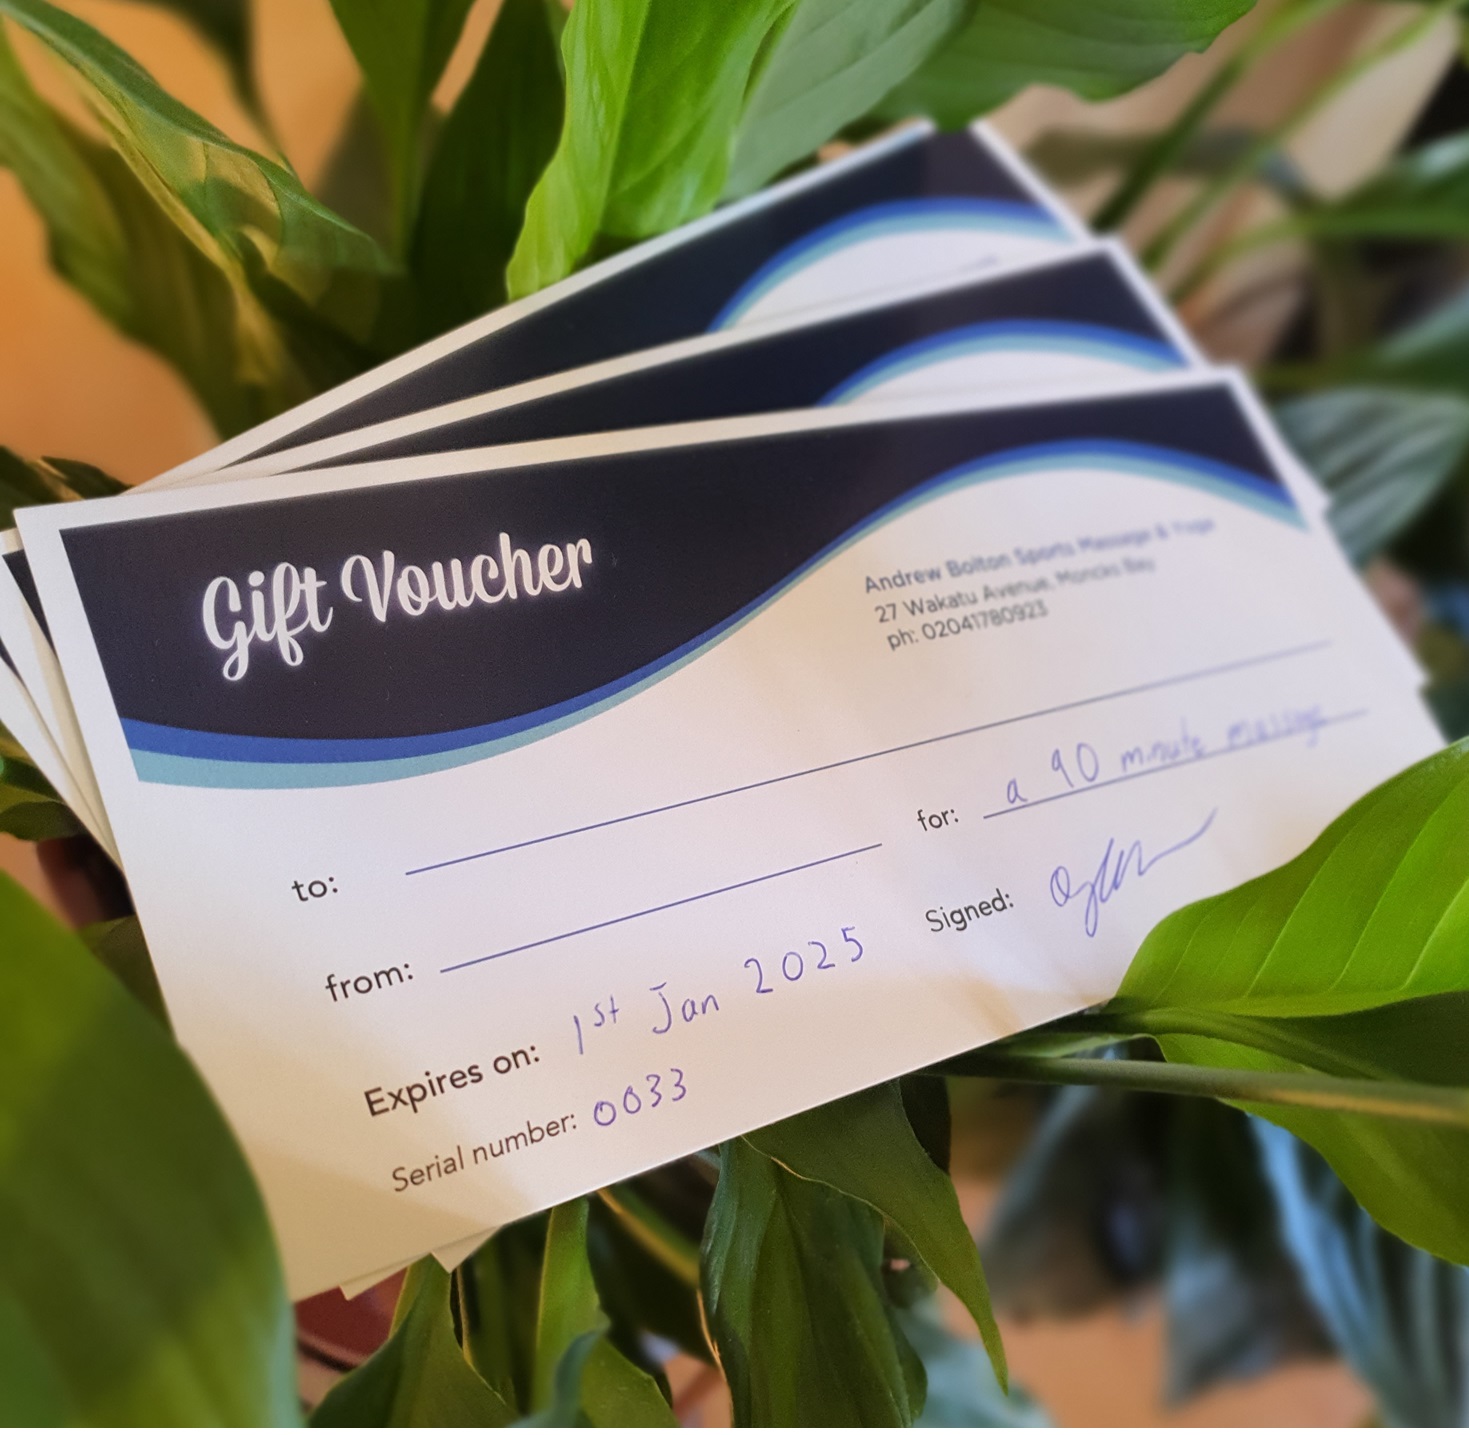 Gift Voucher
Andrew Bolton Sports Massage & Yoga
27 Wakatu Avenue, Moncks Bay
ph: 02041780923
to:
for: a 90 minute massage
from:
Signed:
Expires on: 1st Jan 2025
Serial number: 0033